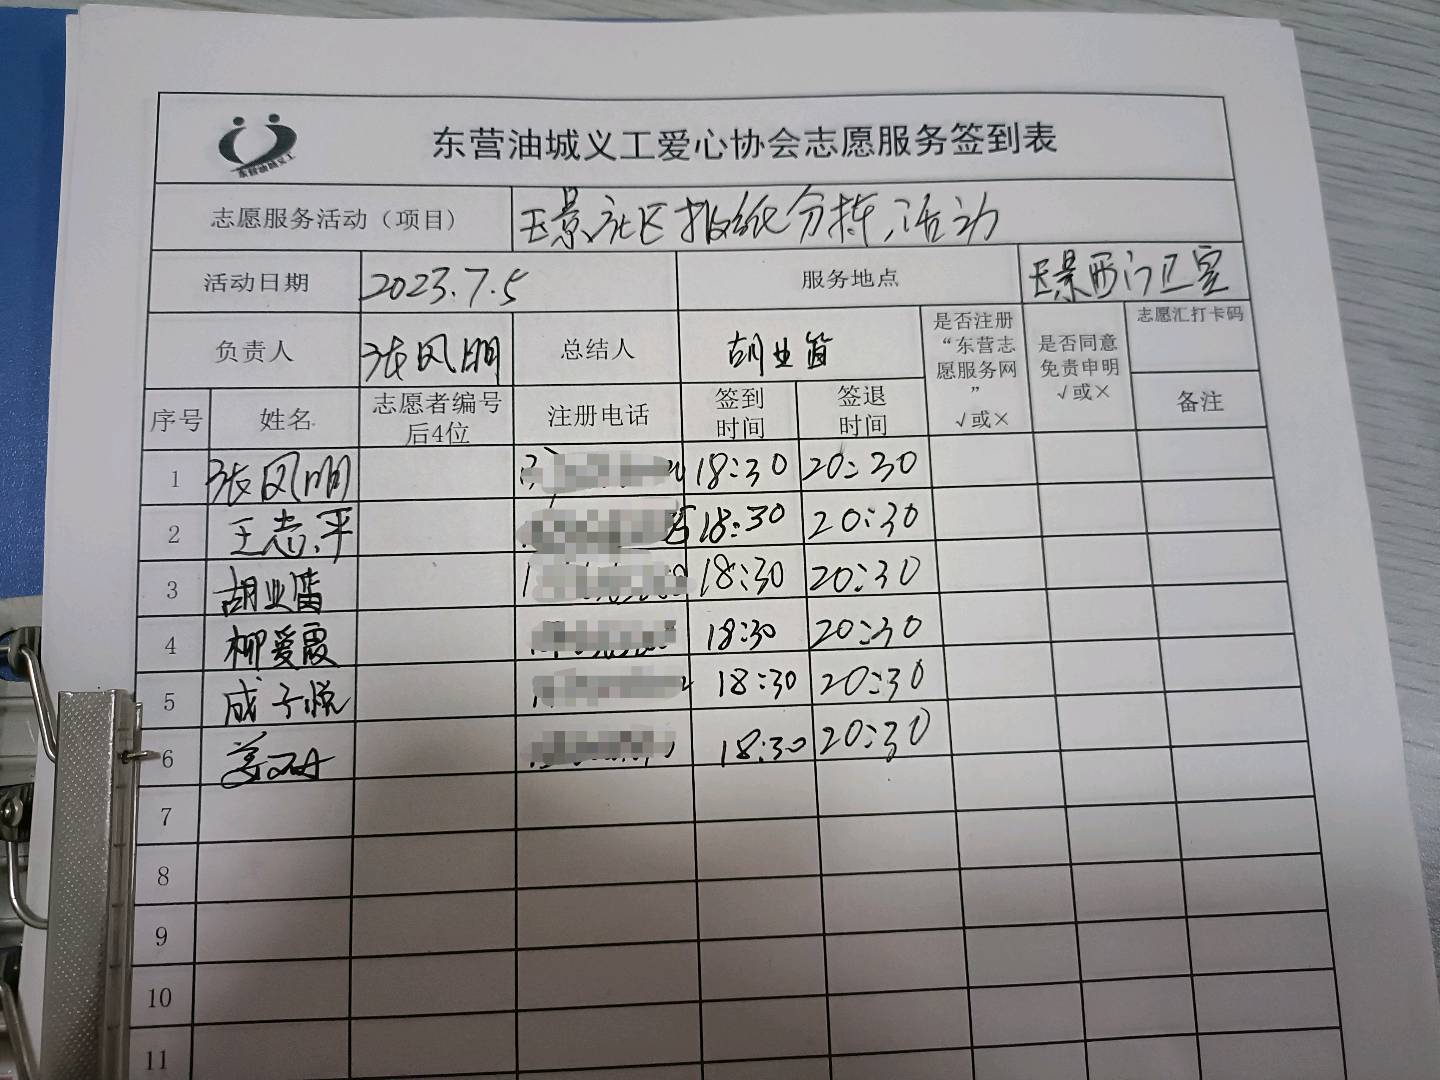 东营油城义工
东营油城义工爱心协会志愿服务签到表
志愿服务活动（项目） 玉景社区报纸分拣活动
活动日期 2023.7.5 服务地点 玉景西门卫室
负责人 张风明 总结人 胡业笛 是否注册“东营志愿服务网” √或× 是否同意免责申明 √或× 志愿汇打卡码
序号 姓名 志愿者编号后4位 注册电话 签到时间 签退时间 备注
1 张风明 18:30 20:30
2 王志平 18:30 20:30
3 胡业笛 18:30 20:30
4 柳爱霞 18:30 20:30
5 成子悦 18:30 20:30
6 18:30 20:30
7
8
9
10
11